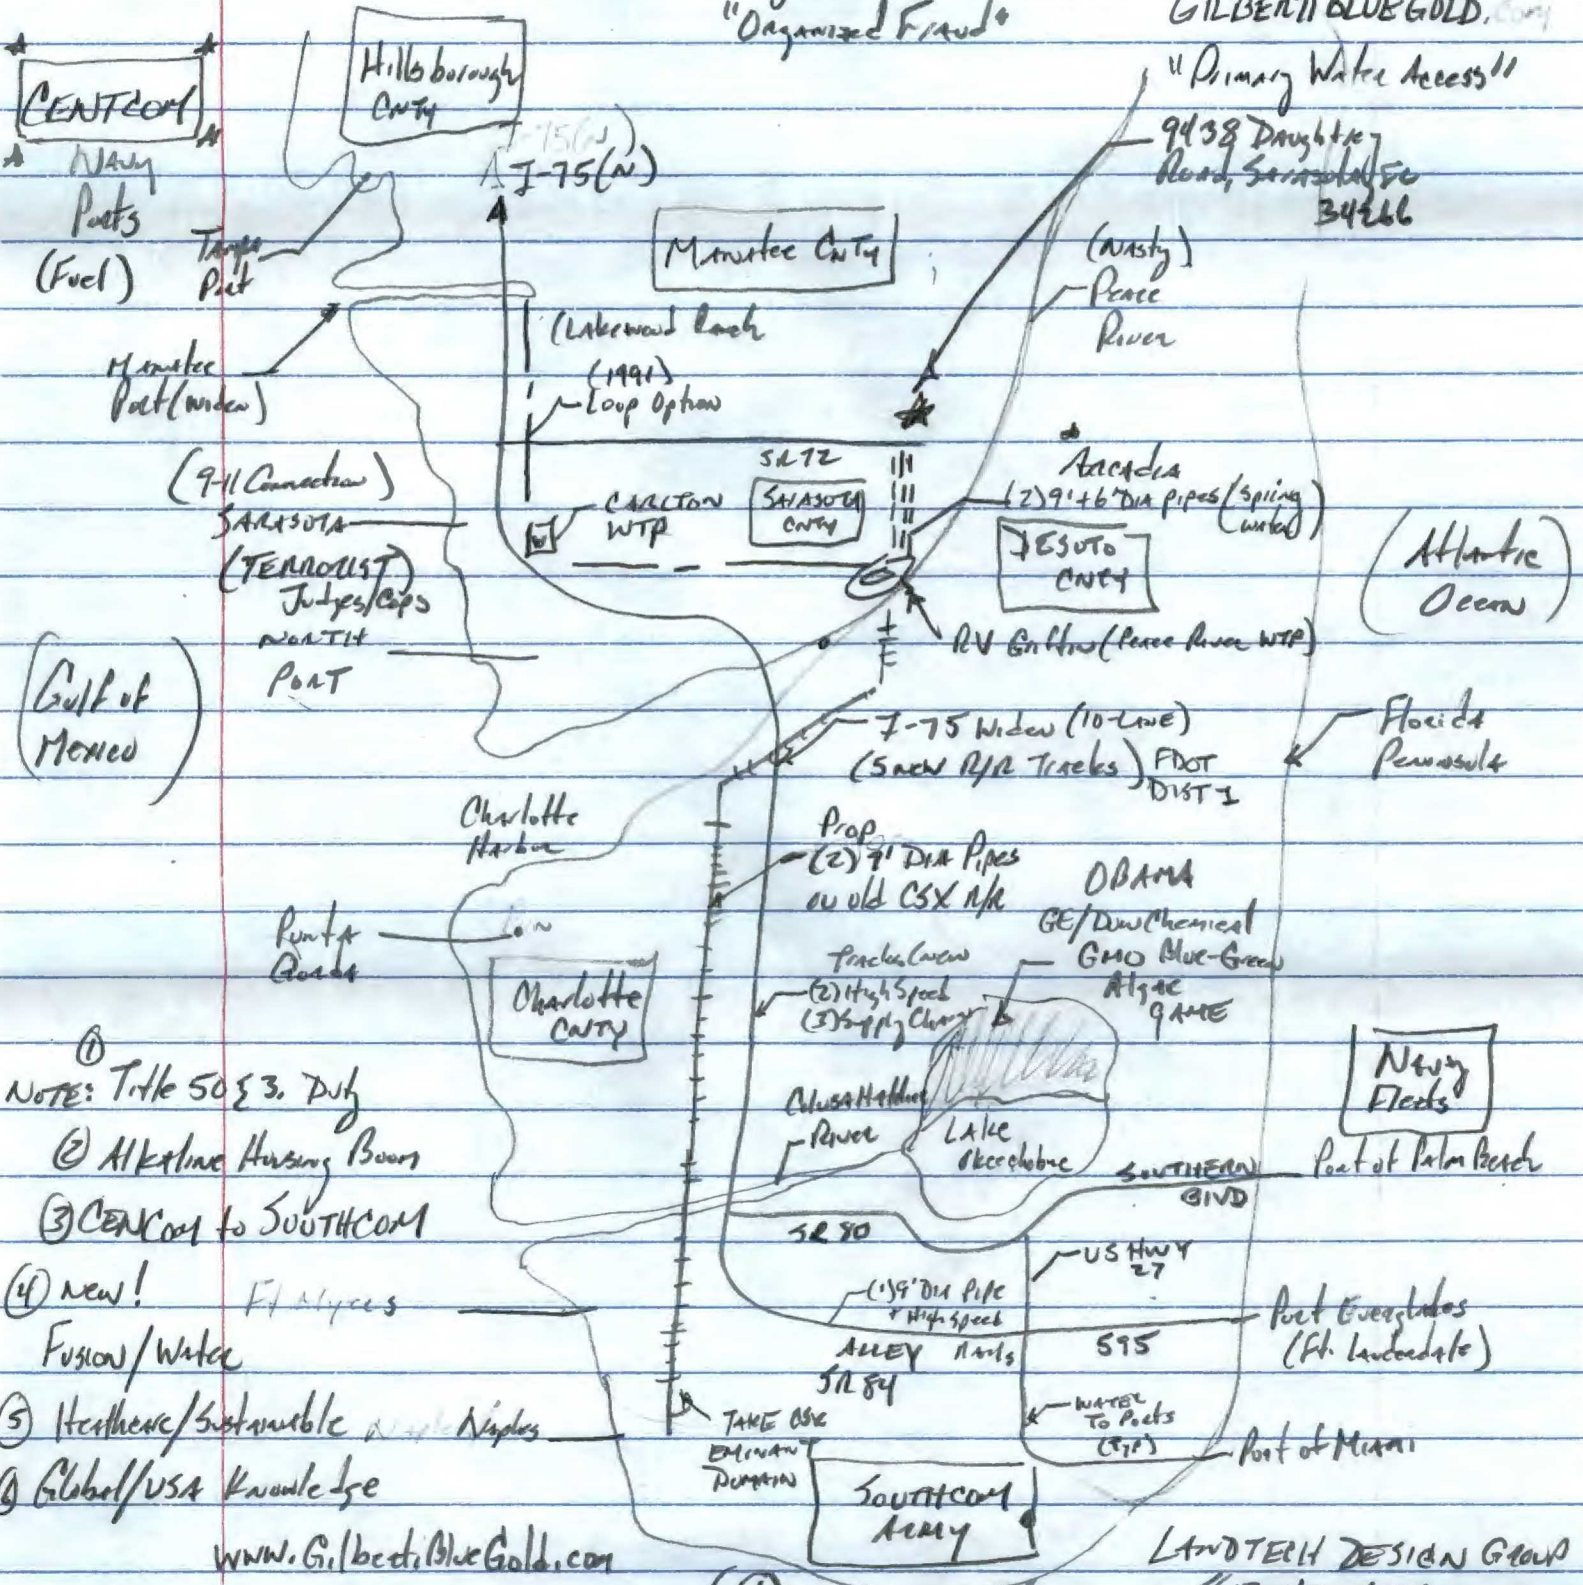 "Organized Fraud"
GILBERTIBLUEGOLD.com
"Primary Water Access"
9438 Daughtrey
Road, Sarasota, FL
34266
CENTCOM
Navy
Ports
(Fuel)
Hillsborough
CNTY
I-75(N)
I-75(N)
Tampa
Port
Manatee CNTY
(Nasty)
Peace
River
Manatee
Port (widen)
(Lakewood Ranch
(1991)
Loop Option
SR72
Arcadia
(2) 9'+6' DIA pipes (Spring
water)
(9-11 Connection)
SARASOTA
(TERRORIST)
Judges/Cops
NORTH
PORT
CARLTON
WTP
SARASOTA
CNTY
DESOTO
CNTY
(Atlantic
Ocean)
RV Griffin (Peace River WTP)
(Gulf of
Mexico)
I-75 Widen (10-LANE)
(5 new R/R Tracks) FDOT
DIST 1
Florida
Peninsula
Charlotte
Harbor
Prop
(2) 9' DIA Pipes
on old CSX R/R
OBAMA
GE/Dow Chemical
GMO Blue-Green
Algae
GAME
Punta
Gorda
Charlotte
CNTY
Tracks (new
(2) High Speed
(3) Supply Change
① 
NOTE: Title 50 § 3. Duty
② Alkaline Housing Boom
③ CENCom to SOUTHCOM
④ New!
Fusion/Water
⑤ Heathcare/Sustainable
⑥ Global/USA Knowledge
Navy
Fleets
River
LAKE
Okeechobee
SOUTHERN
BLVD
Port of Palm Beach
SR 80
US HWY
27
Ft Myers
(1) 9' DIA Pipe
+ High Speed
ALLEY Rails
SR 84
595
Port Everglades
(Ft. Lauderdale)
Naples
TAKE CSX
EMINANT
DOMAIN
WATER
To Ports
(Typ)
Port of MIAMI
SOUTHCOM
ARMY
www.GilbertiBlueGold.com
LANDTECH DESIGN GROUP